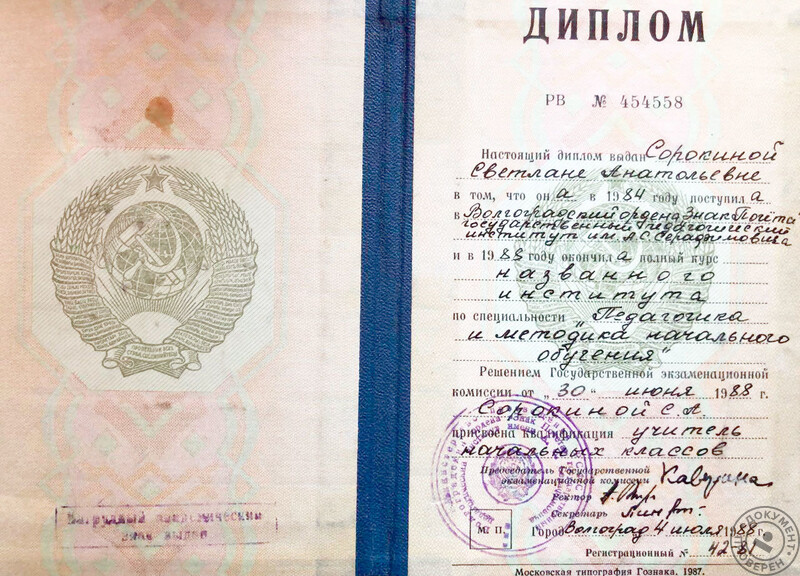 Нагрудный академический
знак выдан
ДИПЛОМ
РВ № 454558
Настоящий диплом выдан Сорокиной
Светлане Анатольевне
в том, что она в 1984 году поступила
в Волгоградский ордена „Знак Почёта“
государственный педагогический
институт им. А.С. Серафимовича
и в 1988 году окончила полный курс
названного
института
по специальности „Педагогика
и методика начального
обучения“
Решением Государственной экзаменационной
комиссии от „30“ июня 1988 г.
Сорокиной С.А.
присвоена квалификация учитель
начальных классов
Председатель Государственной
экзаменационной комиссии
Ректор
Секретарь
М. П. Город Волгоград 4 июля 1988 г.
Регистрационный №
Московская типография Гознака. 1987.
ДОКУМЕНТ ПРОВЕРЕН